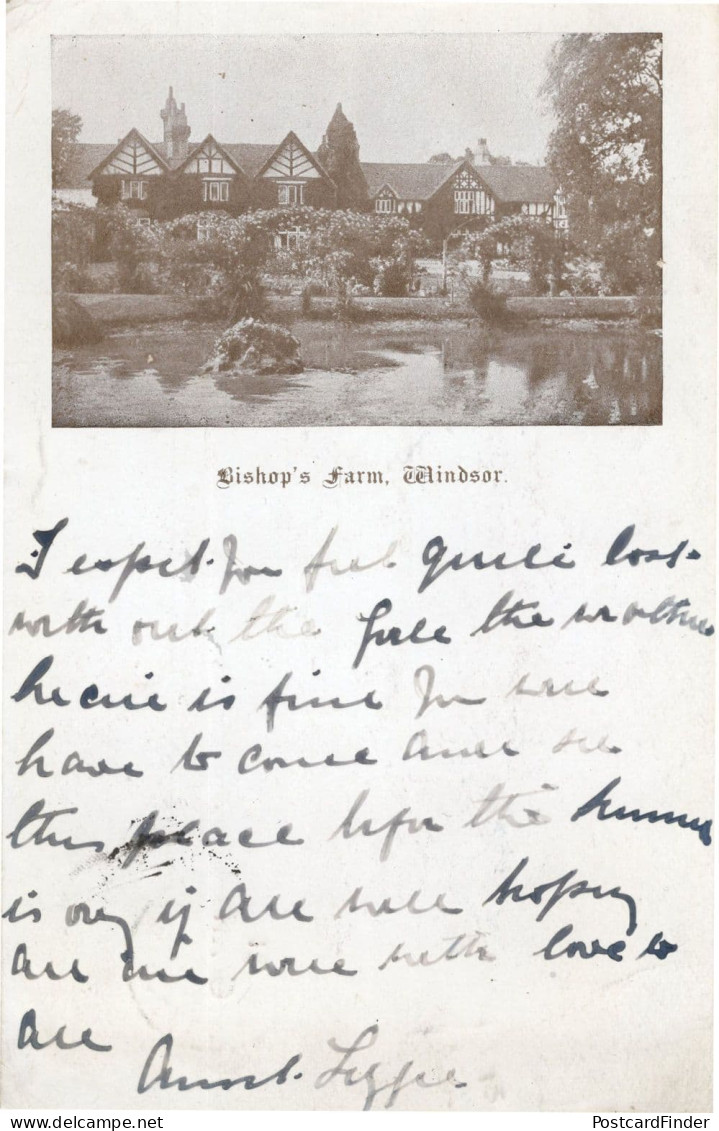 Bishop's Farm, Windsor.
I expect you feel quite lost
with out the girls the weather
here is fine you will
have to come and see
this place befor the summer
is over if all well hoping
all are well with love to
all
Aunt Lizzie
PostcardFinder